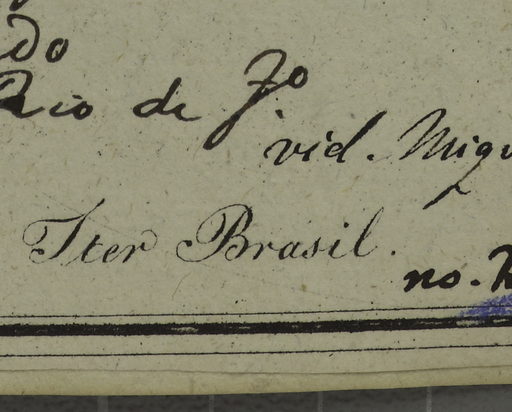 do
Rio de Jo
vid. Miqu
Iter Brasil.
no.